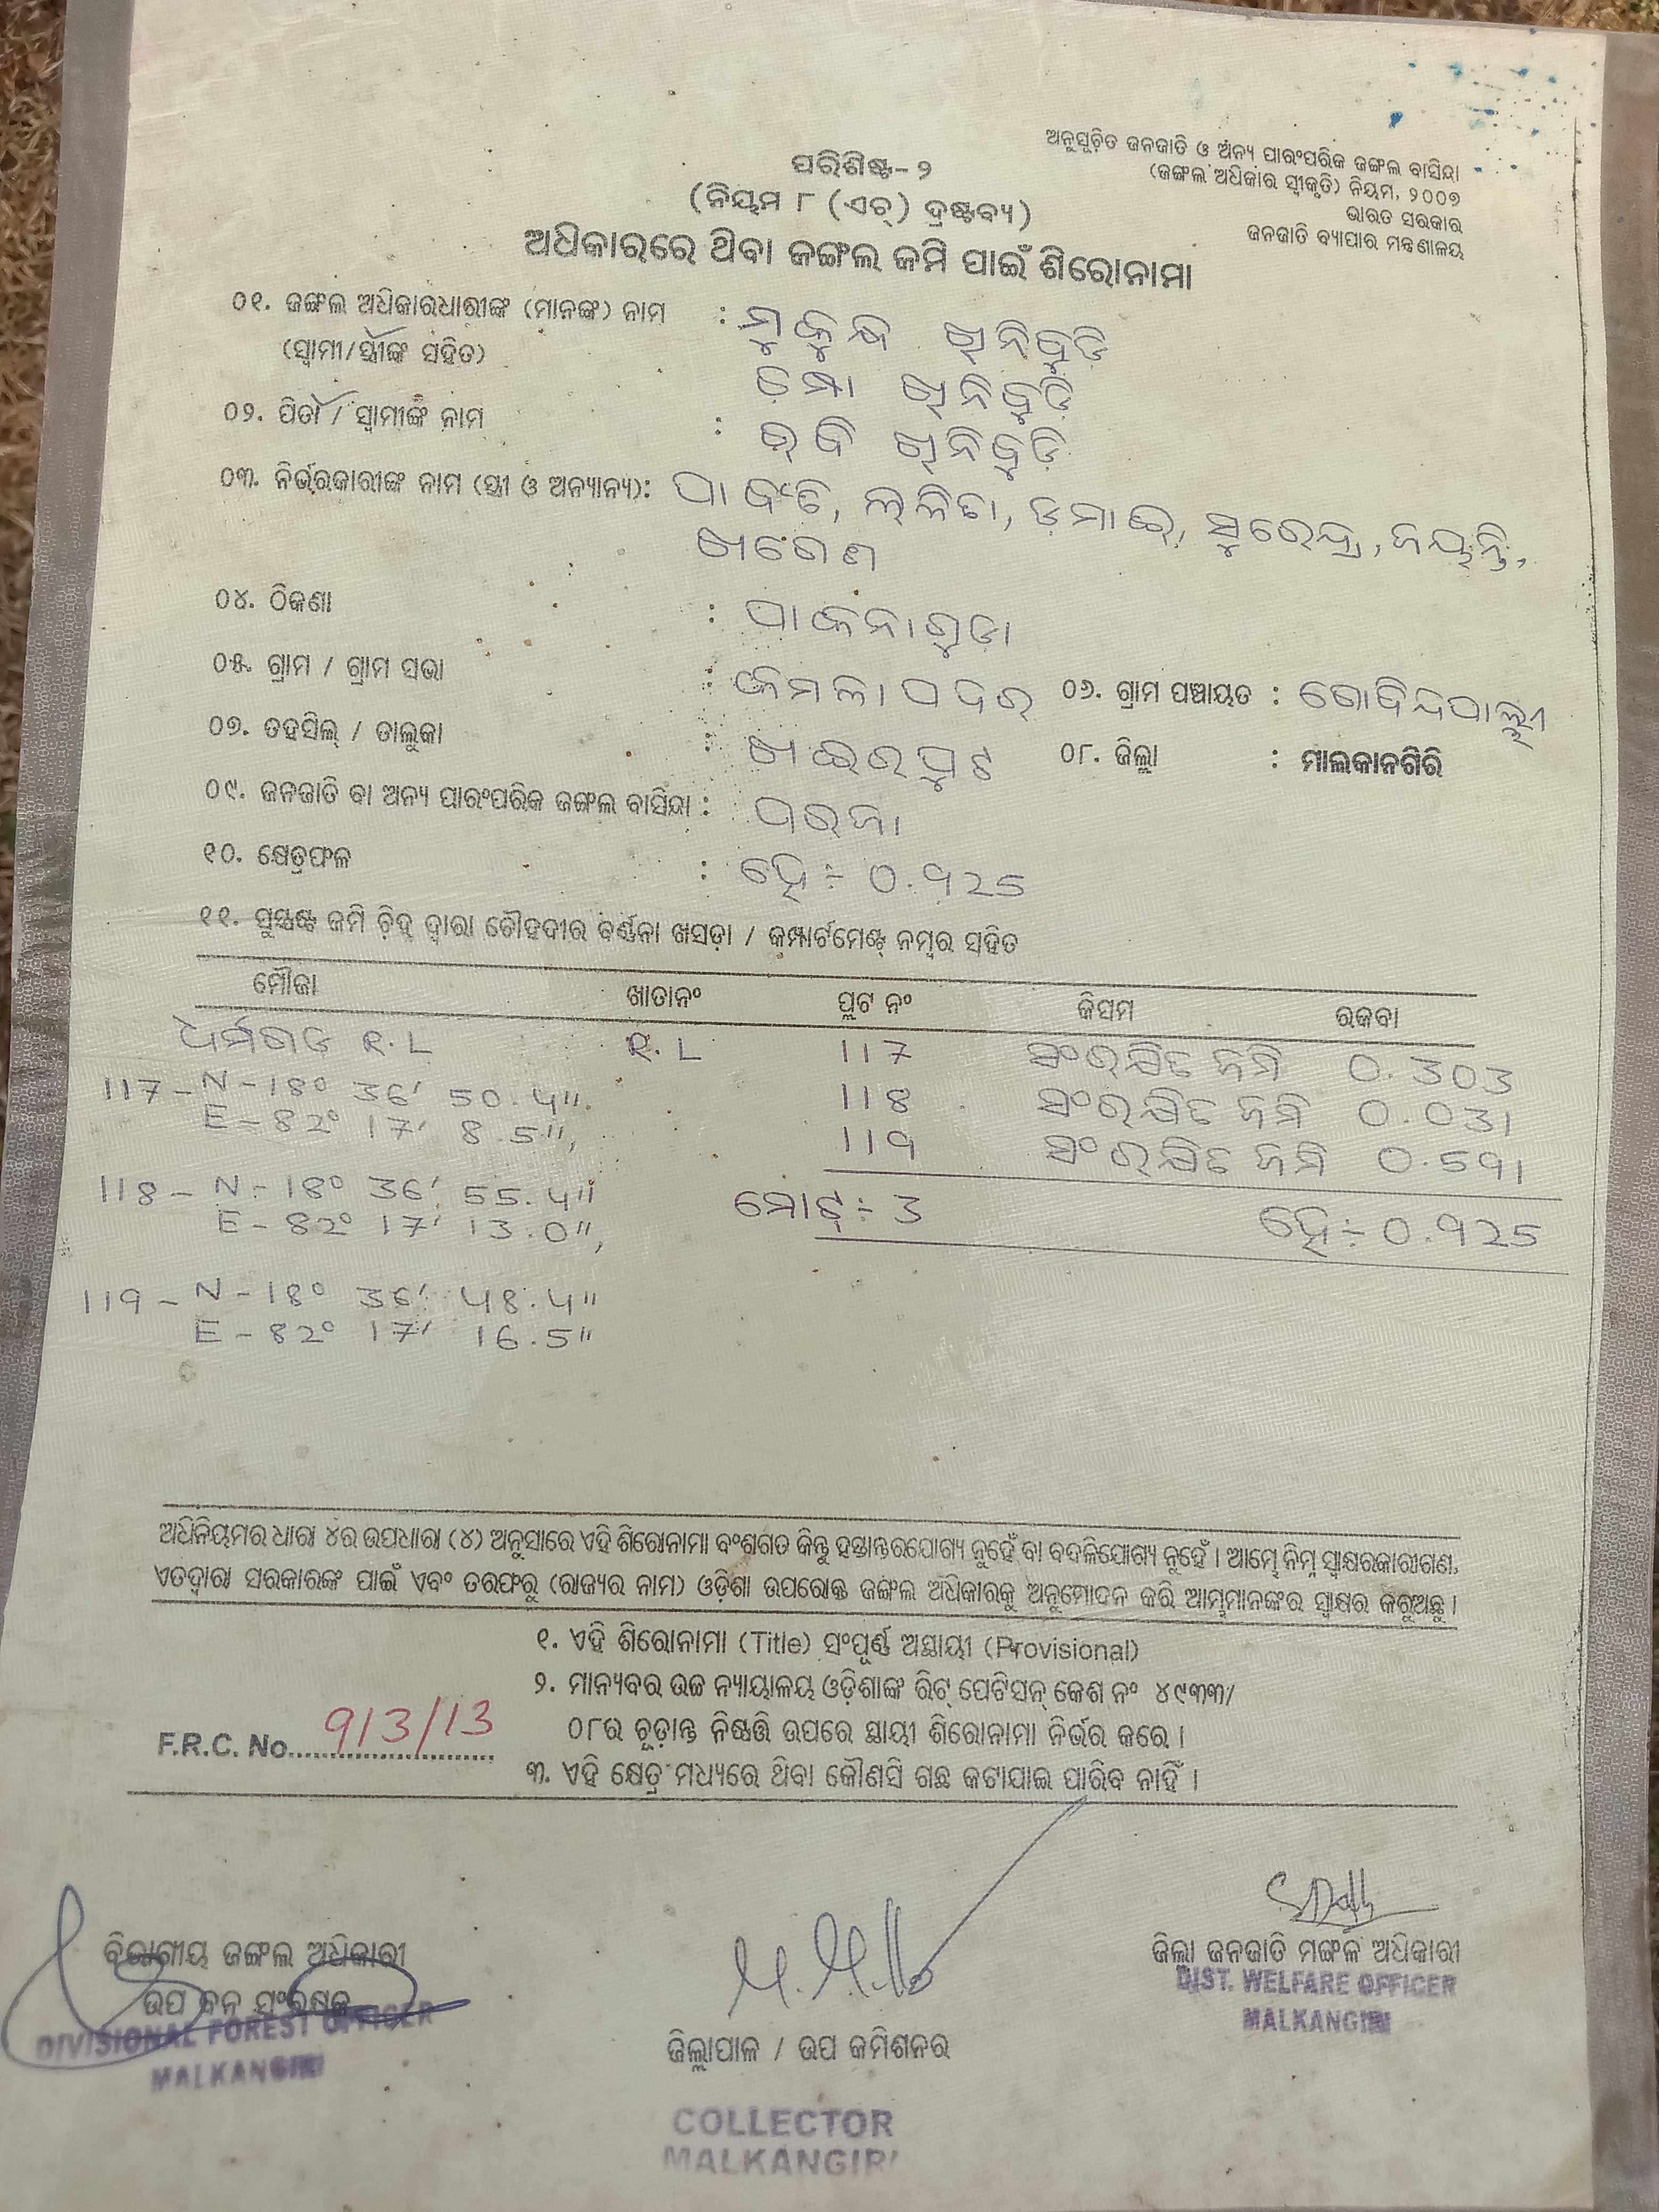 ଅନୁସୂଚିତ ଜନଜାତି ଓ ଅନ୍ୟ ପାରଂପରିକ ଜଙ୍ଗଲ ବାସିନ୍ଦା
(ଜଙ୍ଗଲ ଅଧିକାର ସ୍ଵୀକୃତି) ନିୟମ, ୨୦୦୭
ଭାରତ ସରକାର
ଜନଜାତି ବ୍ୟାପାର ମନ୍ତ୍ରଣାଳୟ
ପରିଶିଷ୍ଟ-୨
(ନିୟମ ୮ (ଏଚ୍) ଦ୍ରଷ୍ଟବ୍ୟ)
ଅଧିକାରରେ ଥିବା ଜଙ୍ଗଲ ଜମି ପାଇଁ ଶିରୋନାମା
୦୧. ଜଙ୍ଗଲ ଅଧିକାରଧାରୀଙ୍କ (ମାନଙ୍କ) ନାମ : ମୁକୁନ୍ଦ ଖିନିବୁଡି
(ସ୍ଵାମୀ/ସ୍ତ୍ରୀଙ୍କ ସହିତ) ଖିନିବୁଡି
୦୨. ପିତା / ସ୍ଵାମୀଙ୍କ ନାମ : ରବି ଖିନିବୁଡି
୦୩. ନିର୍ଭରକାରୀଙ୍କ ନାମ (ସ୍ତ୍ରୀ ଓ ଅନ୍ୟାନ୍ୟ): ପାର୍ବତି, ଲଳିତା, ଡମାଇ, ସୁରେନ୍ଦ୍ର, ଜୟନ୍ତି,
ଖଗେଣ
୦୪. ଠିକଣା : ପାକନାଗୁଡା
୦୫. ଗ୍ରାମ / ଗ୍ରାମ ସଭା : କମଳାପଦର ୦୬. ଗ୍ରାମ ପଞ୍ଚାୟତ : ଗୋବିନ୍ଦପାଲ୍ଲୀ
୦୭. ତହସିଲ୍ / ତାଲୁକା : ଖଇରପୁଟ ୦୮. ଜିଲ୍ଲା : ମାଲକାନଗିରି
୦୯. ଜନଜାତି ବା ଅନ୍ୟ ପାରଂପରିକ ଜଙ୍ଗଲ ବାସିନ୍ଦା : ପରଜା
୧୦. କ୍ଷେତ୍ରଫଳ : ହେ÷ 0.925
୧୧. ସୁସ୍ପଷ୍ଟ ଜମି ଚିହ୍ନ ଦ୍ଵାରା ଚୌହଦୀର ବର୍ଣ୍ଣନା ଖସଡ଼ା / କମ୍ପାର୍ଟମେଣ୍ଟ୍ ନମ୍ବର ସହିତ
ମୌଜା ଖାତାନଂ ପ୍ଲଟ ନଂ କିସମ ରକବା
ଧର୍ମଗଡ R.L R.L 117 ସଂରକ୍ଷିତ ଜମି 0.303
117 – N – 18° 36' 50.4".
E – 82° 17' 8.5",
118 ସଂରକ୍ଷିତ ଜମି 0.031
119 ସଂରକ୍ଷିତ ଜମି 0.591
118 – N – 18° 36' 55.4"
E – 82° 17' 13.0",
ମୋଟ୍ ÷ 3 ହେ÷ 0.925
119 – N – 18° 36' 48.4"
E – 82° 17' 16.5"
ଅଧିନିୟମର ଧାରା ୪ର ଉପଧାରା (୪) ଅନୁସାରେ ଏହି ଶିରୋନାମା ବଂଶଗତ କିନ୍ତୁ ହସ୍ତାନ୍ତରଯୋଗ୍ୟ ନୁହେଁ ବା ବଦଳିଯୋଗ୍ୟ ନୁହେଁ । ଆମ୍ଭେ ନିମ୍ନ ସ୍ଵାକ୍ଷରକାରୀଗଣ,
ଏତଦ୍ଵାରା ସରକାରଙ୍କ ପାଇଁ ଏବଂ ତରଫରୁ (ରାଜ୍ୟର ନାମ) ଓଡ଼ିଶା ଉପରୋକ୍ତ ଜଙ୍ଗଲ ଅଧିକାରକୁ ଅନୁମୋଦନ କରି ଆମ୍ଭମାନଙ୍କର ସ୍ଵାକ୍ଷର କରୁଅଛୁ ।
୧. ଏହି ଶିରୋନାମା (Title) ସଂପୂର୍ଣ୍ଣ ଅସ୍ଥାୟୀ (Provisional)
୨. ମାନ୍ୟବର ଉଚ୍ଚ ନ୍ୟାୟାଳୟ ଓଡ଼ିଶାଙ୍କ ରିଟ୍ ପେଟିସନ୍ କେଶ ନଂ ୪୯୩୩/
୦୮ର ଚୂଡ଼ାନ୍ତ ନିଷ୍ପତ୍ତି ଉପରେ ସ୍ଥାୟୀ ଶିରୋନାମା ନିର୍ଭର କରେ ।
F.R.C. No. 913/13
୩. ଏହି କ୍ଷେତ୍ର ମଧ୍ୟରେ ଥିବା କୌଣସି ଗଛ କଟାଯାଇ ପାରିବ ନାହିଁ ।
ବିଭାଗୀୟ ଜଙ୍ଗଲ ଅଧିକାରୀ
ଉପ ବନ ସଂରକ୍ଷକ
DIVISIONAL FOREST OFFICER
MALKANGIRI
ଜିଲ୍ଲାପାଳ / ଉପ କମିଶନର
COLLECTOR
MALKANGIRI
ଜିଲ୍ଲା ଜନଜାତି ମଙ୍ଗଳ ଅଧିକାରୀ
DIST. WELFARE OFFICER
MALKANGIRI